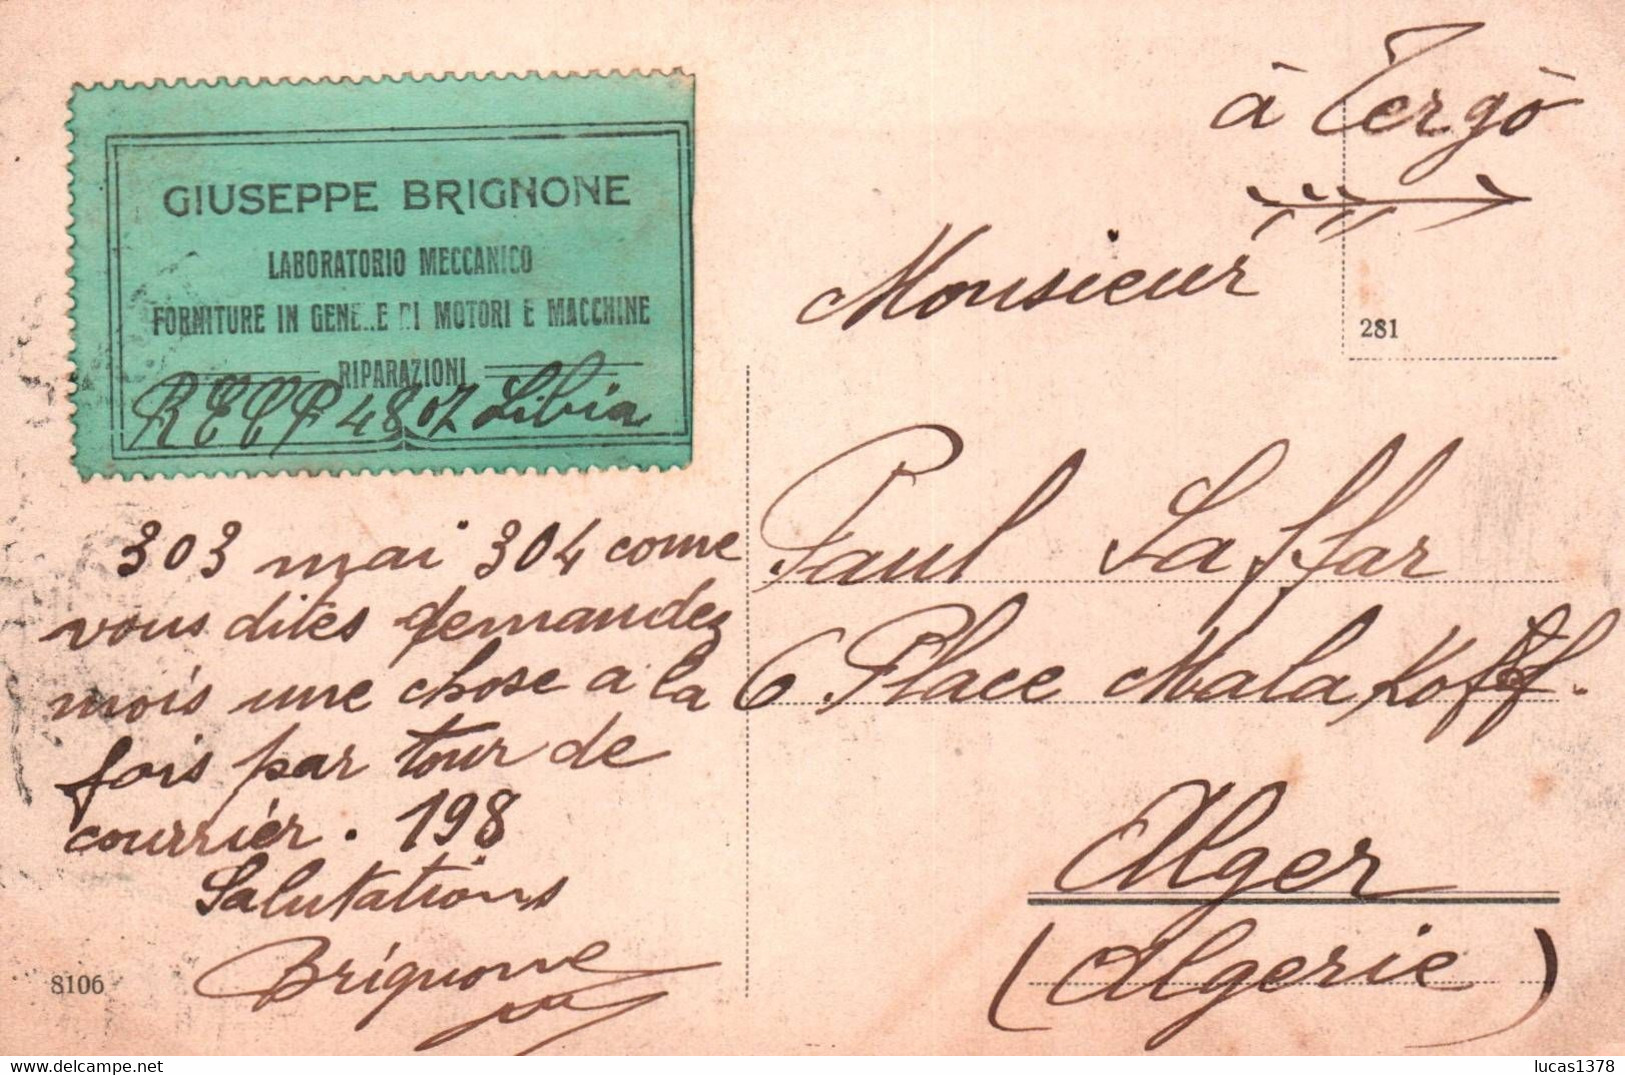 à Tergò
GIUSEPPE BRIGNONE
LABORATORIO MECCANICO
FORNITURE IN GENE..E DI MOTORI E MACCHINE
RIPARAZIONI
4807 Libia
281
Monsieur
Paul Laffar
6 Place Malakoff.
Alger
(Algerie)
303 mai 304 come
vous dites demandez
mois une chose a la
fois par tour de
courrièr. 198
Salutations
Brignone
8106
lucas1378